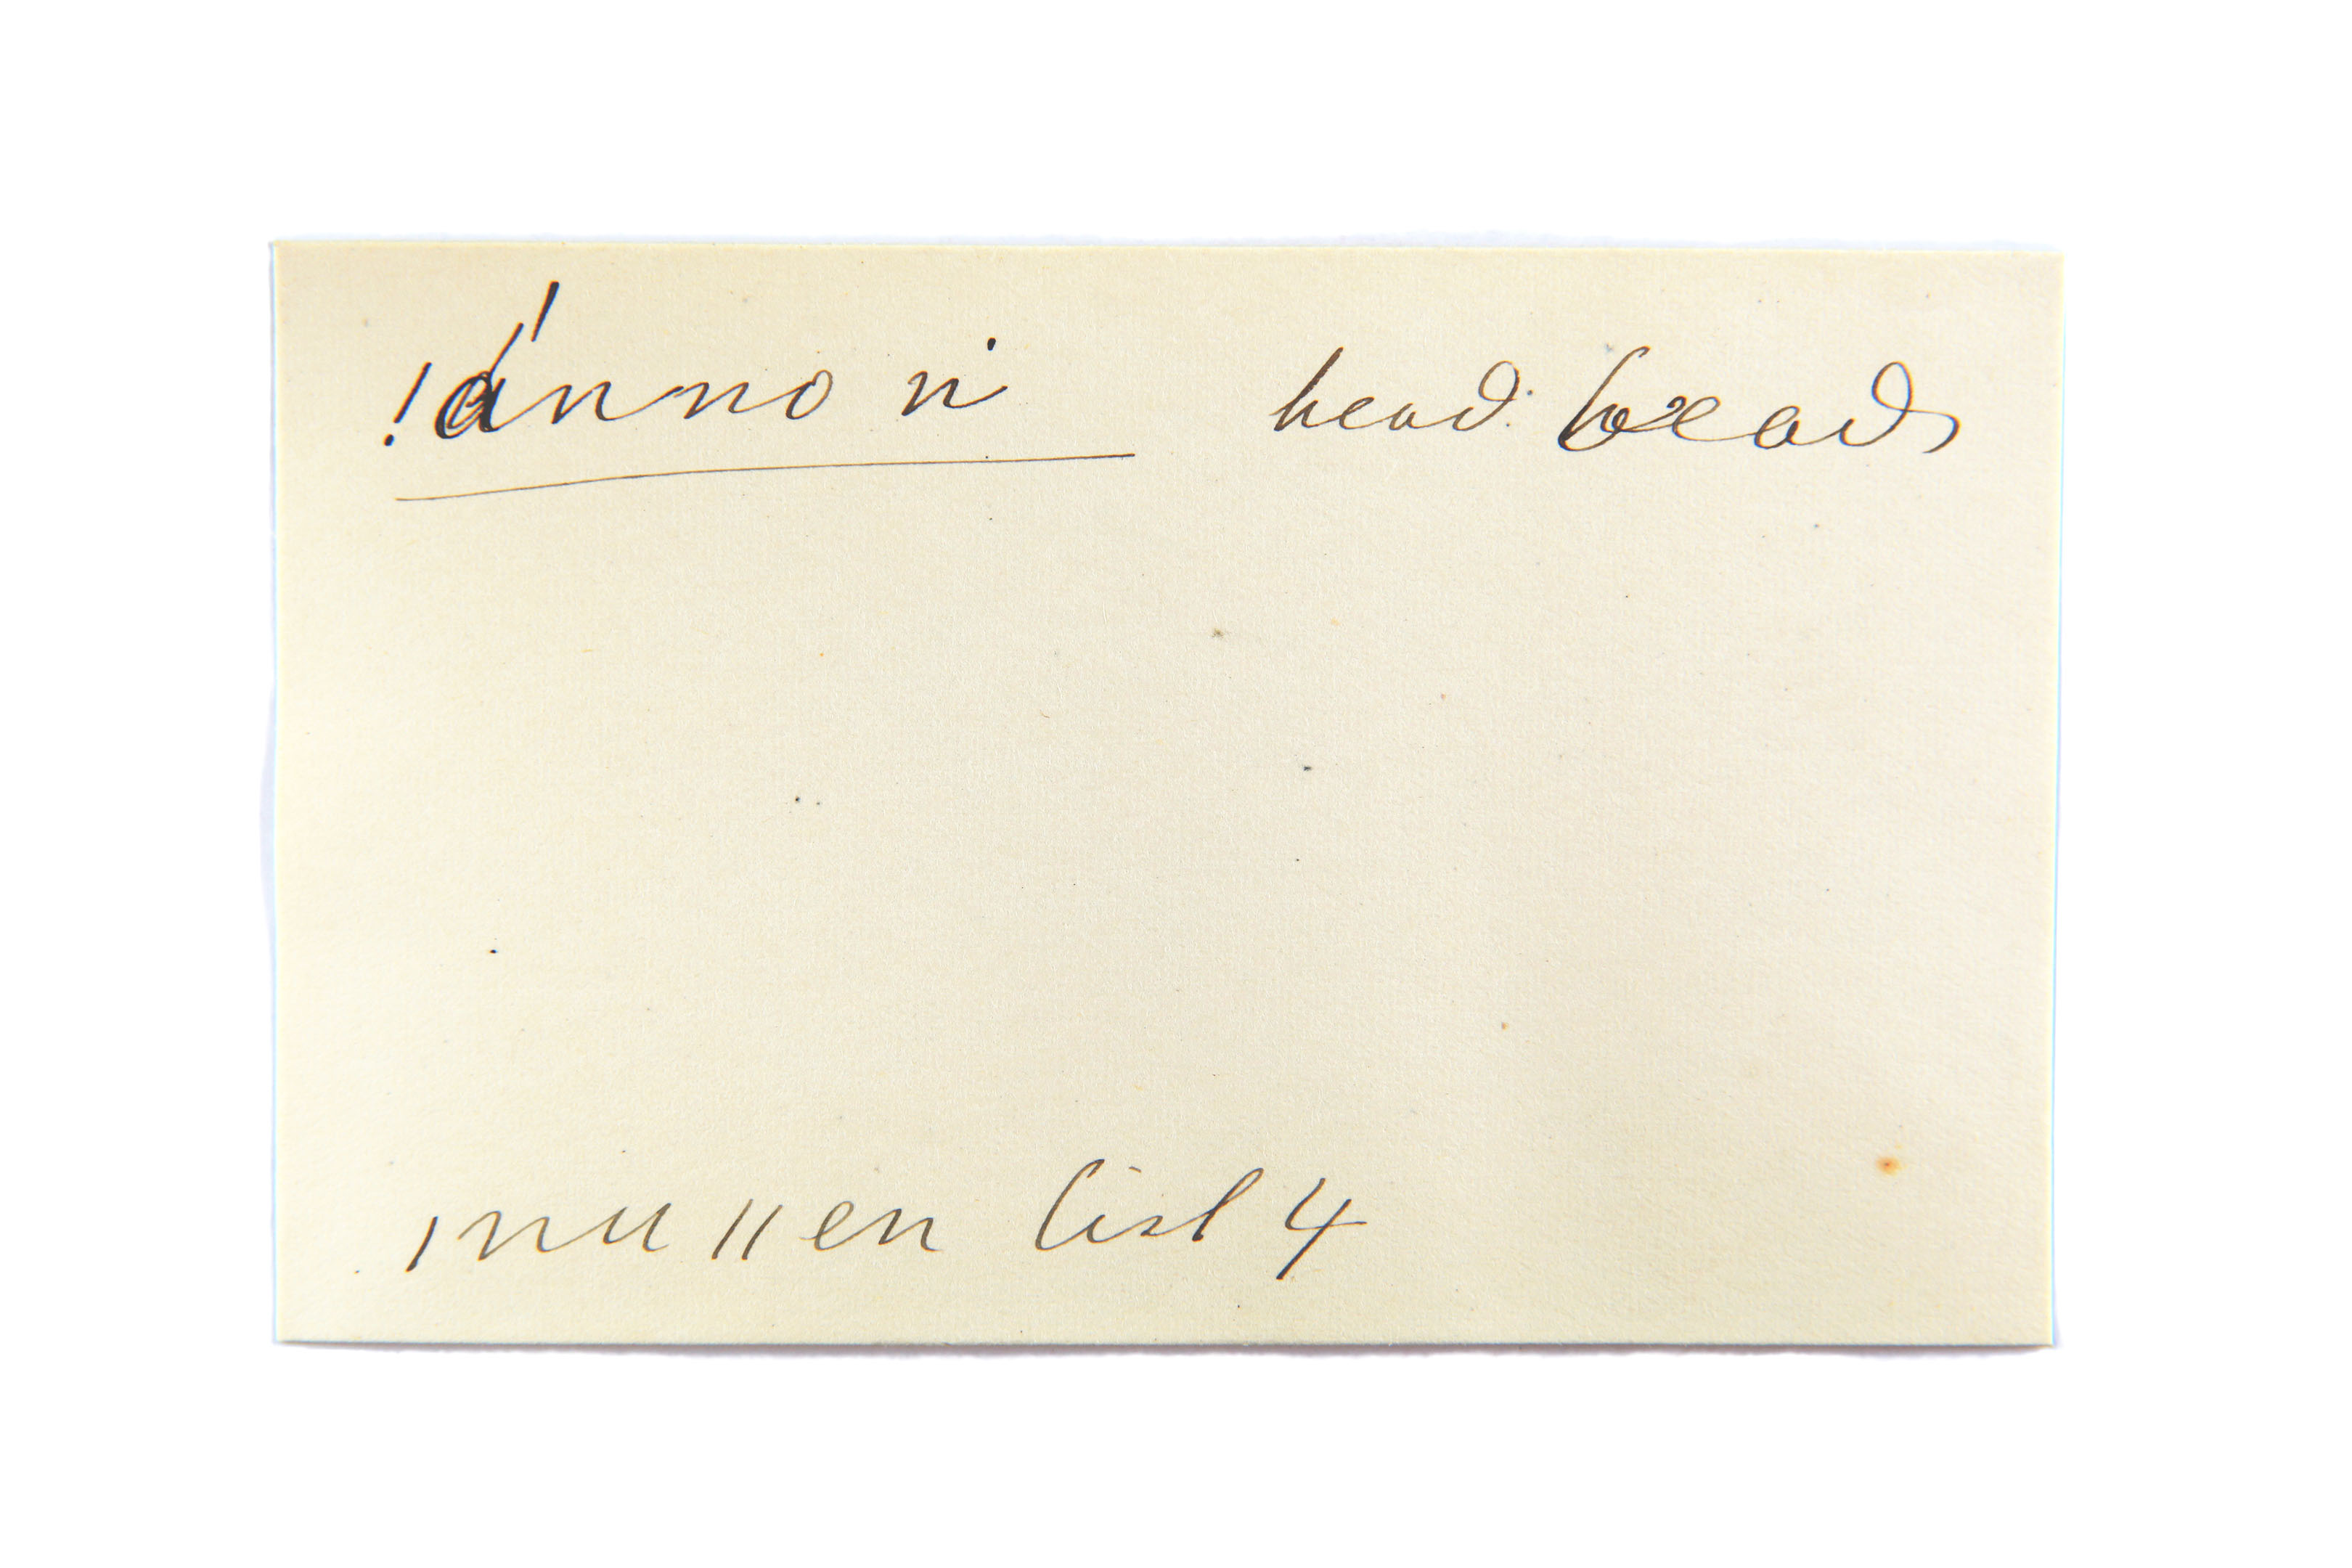 !ánno ń head beads
ǀnuǁen list 4